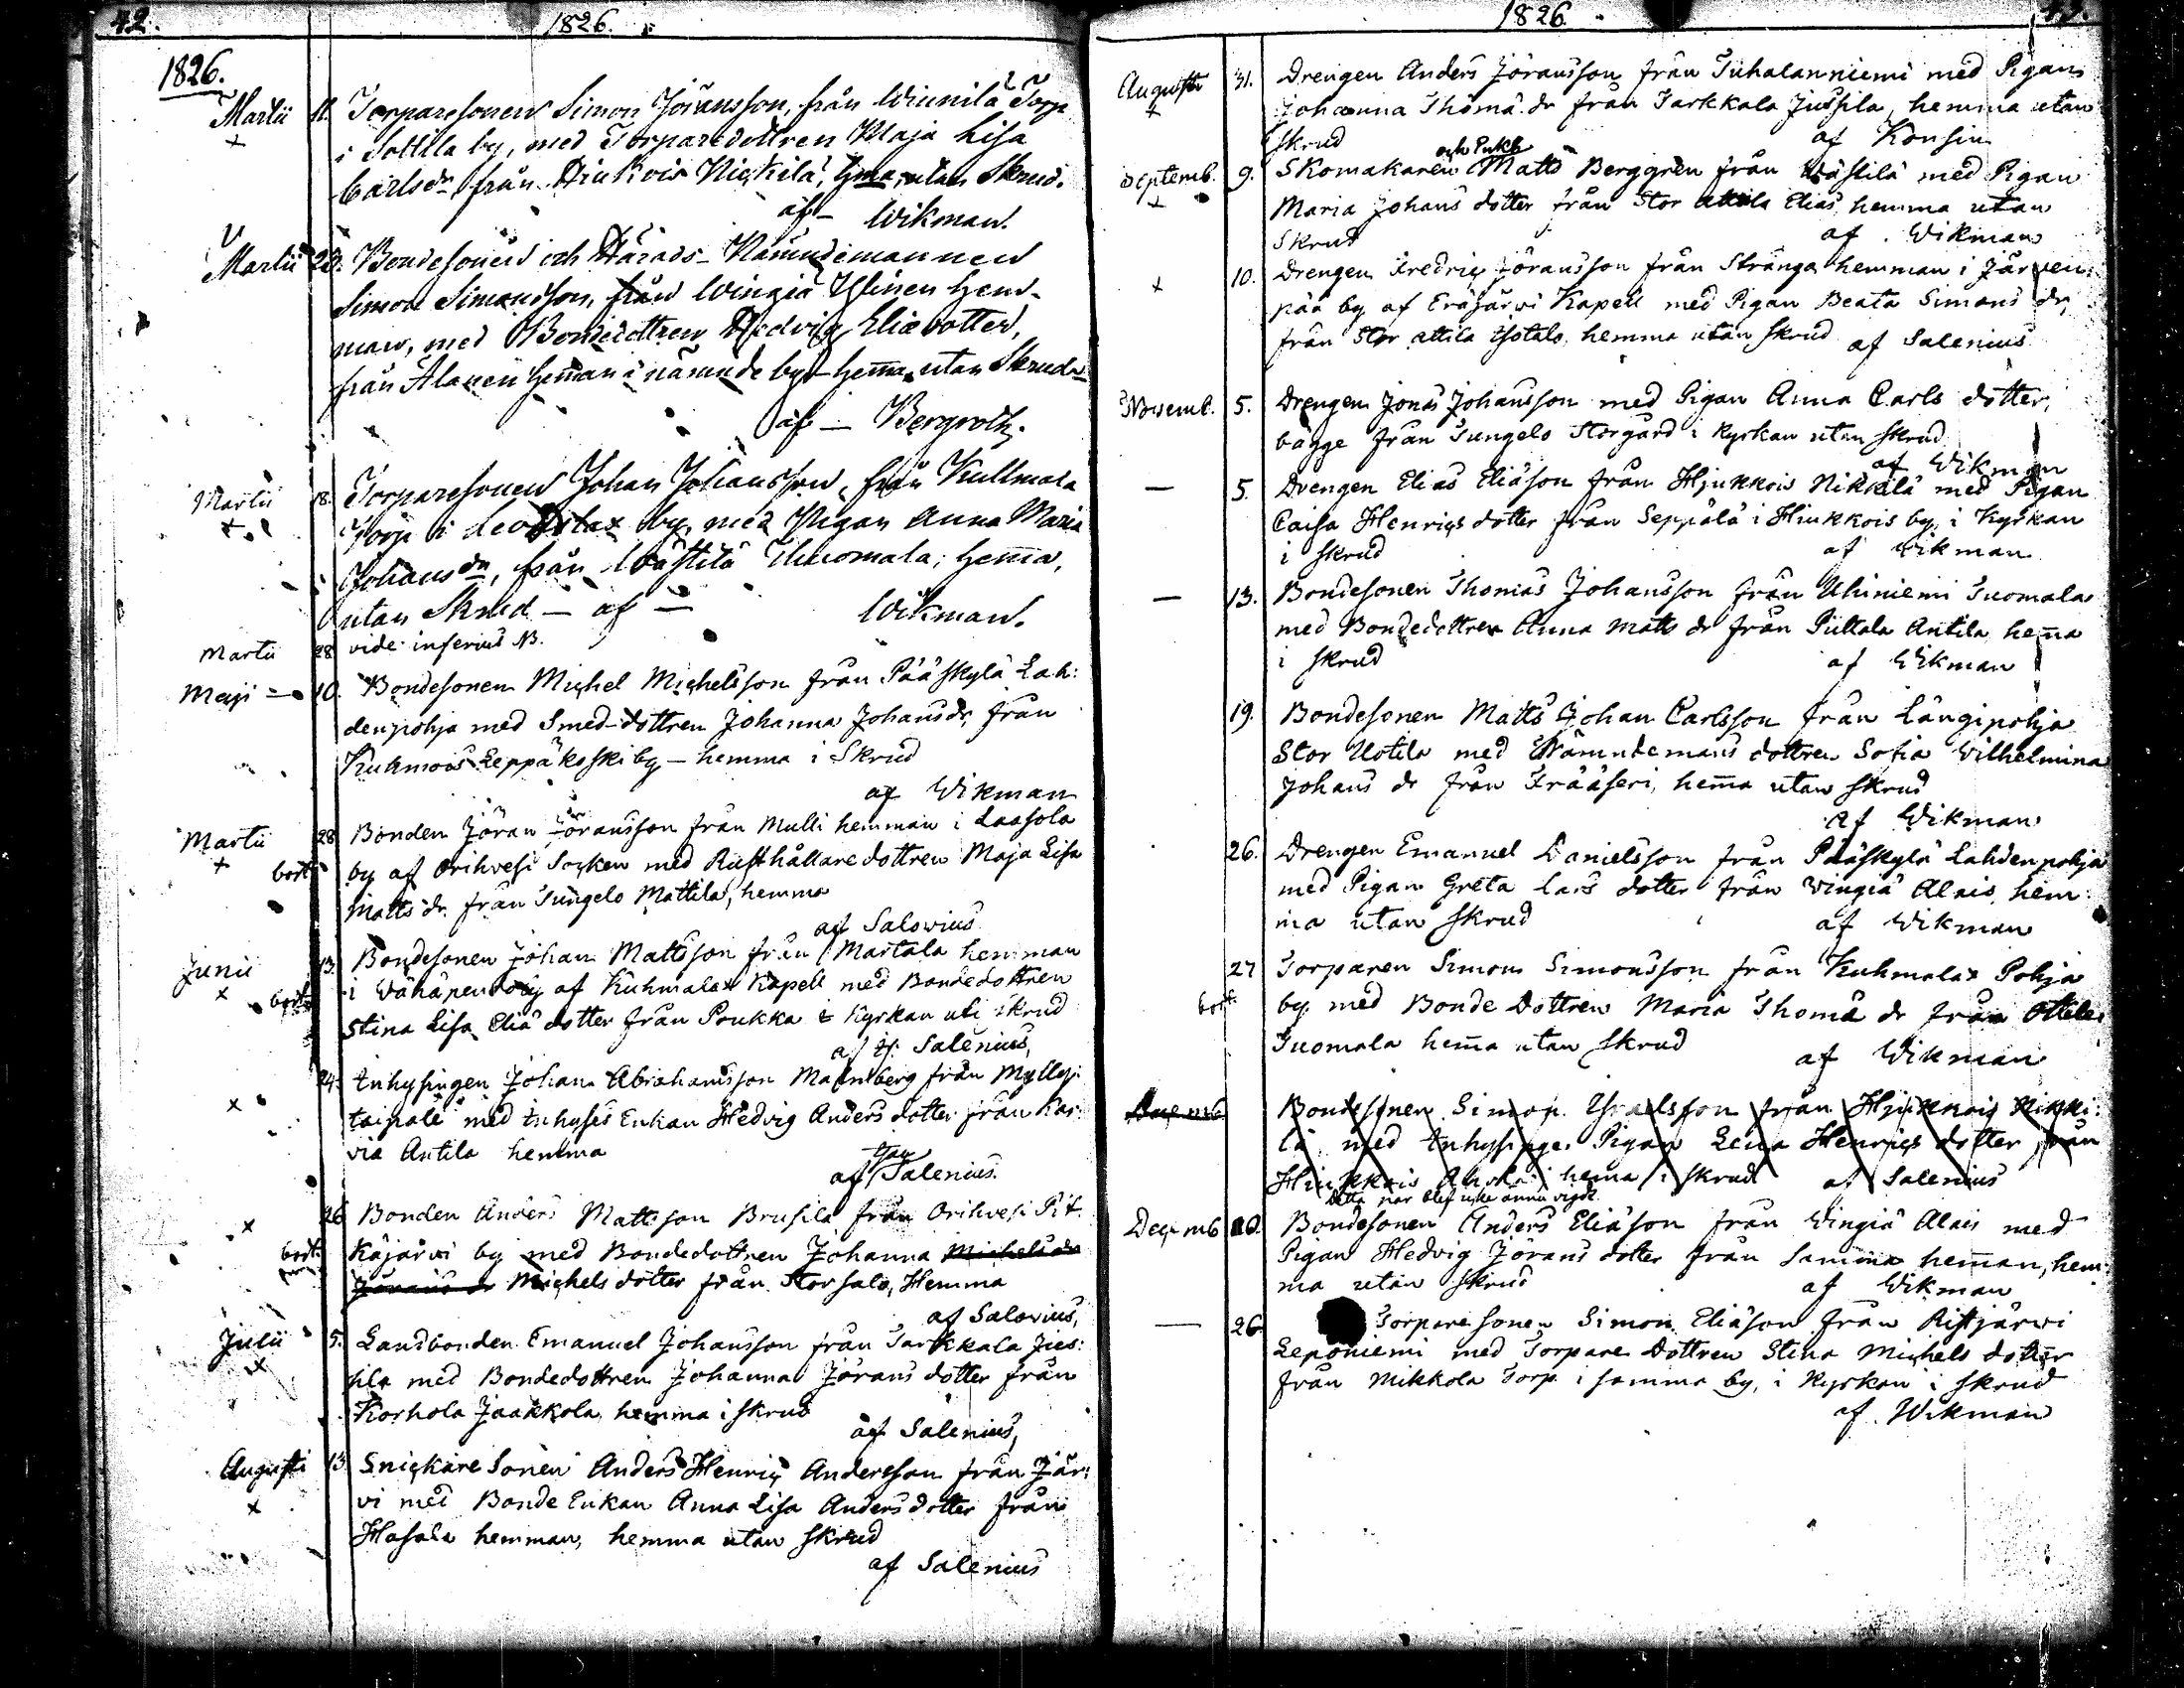 42.
1826.
1826.
Martii 11. Torparesonen Simon Jöransson, från Wiinilä Torp
+ i Sottila by, med Torparedottren Maja Lisa
Carlsdr från Hiukois Nickilä, hema, utan Skrud.
af - Wikman.
Martii 28. Bondesonen och Härads-Nämndemannen
Simon Simonsson, från Wingiä Ylinen hem-
man, med Bondedottren Hedvig Eliædotter,
från Alanen heman i nämnde by - hema, utan Skrud
af - Bergroth.
Martii 18. Torparesonen Johan Johansson, från Kullmala
+ Torp i by, med Pigan Anna Maria
Johansdr, från Wästilä Uhuomala, hema,
utan Skrud - af - Wikman.
Martii 28 vide inferius NB.
Maji - 10. Bondesonen Michel Michelsson från Pääskylä Lah:
denpohja med Smed-dottren Johanna Johansdr, från
Kuhmois Leppäkoski by - hemma i Skrud
af Wikman
Martii 28 Bonden Jöran Jöransson från Mulli hemman i Laasola
+ bort by af Orihvesi Socken med Rusthållare dottren Maja Lisa
Matts dr. från Jungelo Mattila, hemma
af Salovius
Junii 13. Bondesonen Johan Mattsson från Martala hemman
+ bort i Wähäpendo by af Kuhmalax Kapell med Bondedottren
Stina Lisa Eliä dotter från Poukka i Kyrkan uti skrud
af Tj. Salenius,
+ 24. Inhysingen Johan Abrahamsson Malmberg från Myllys:
taipale med Inhyses Enkan Hedvig Anders dotter från Kar:
via Antila hemma
af Salenius.
+ 26 Bonden Anders Mattsson Brusila från Orihvesi Pit.
bort. Käjärvi by med Bondedottren Johanna Michelsdr
Jörans dr Michels dotter från Storsalo, Hemma
af Salovius,
Julii 5. Landbonden Emanuel Johansson från Sarkkala Jies:
+ pila med Bondedottren Johanna Jörans dotter från
Korhola Jaakkola hemma i skrud
af Salenius,
Augusti 13. Snickare Sonen Anders Henric Andersson från Jär:
+ vi med Bonde Enkan Anna Lisa Anders dotter från
Hasala hemman, hemma utan skrud
af Salenius
1826.
43.
Augusti 31. Drengen Anders Jöransson från Juhalanniemi med Pigan
+ Johanna Thomä dr från Sarkkala Jussila, hemma utan
skrud af Konsin
och Enkl
Septemb. 9. Skomakaren Matts Berggren från Wästilä med Pigan
+ Maria Johans dotter från Stor Attila Elias, hemma utan
Skrud af Wikman
+ 10. Drengen Fredric Jöransson från Strånga hemman i Järven:
pää by af Eräjärvi Kapell med Pigan Beata Simons dr,
från Stor attila Yotalo, hemma utan skrud af Salenius
Novemb. 5. Drengen Jonas Johansson med Pigan Anna Carls dotter,
bägge från Jungelo Storgård i Kyrkan utan skrud
af Wikman
- 5. Drengen Elias Eliäson från Hjukkois Nikkilä med Pigan
Caisa Henrics dotter från Seppälä i Hiukkois by, i Kyrkan
i skrud af Wikman
- 13. Bondesonen Thomas Johansson från Uhiniemi Tuomala
med Bondedottren Anna Matts dr från Puttala Antila hema
i skrud af Wikman
19. Bondesonen Matts Johan Carlsson från Längipohja
Stor Uotila med Nämndemans dottren Sofia Wilhelmina
Johans dr från Frääseri, hema utan skrud
af Wikman
26. Drengen Emanuel Danielsson från Pääskylä Lahdenpohja
med Pigan Greta Lars dotter från Wingiä Alais, hem:
ma utan skrud af Wikman
27 Torparen Simon Simonsson från Kuhmalax Pohja
bort. by med Bonde Dottren Maria Thomä dr från Ottila
Tuomala hema utan skrud
af Wikman
Decemb Bondesonen Simon Ysraelsson från Hjukkois Nikki:
lä med Inhysinge Pigan Lena Henrics dotter från
Hiukkois hema i skrud af Salenius
Detta par blef icke ännu vigdt.
Decemb 10. Bondesonen Anders Eliäson från Wingiä Alais med
Pigan Hedvig Jörans dotter från Samma heman, hem:
ma utan skrud af Wikman
- 26. Torpare sonen Simon Eliäson från Ristjärvi
Leponiemi med Torpare Dottren Stina Michels dotter
från Mikkola Torp i samma by, i Kyrkan i skrud
af Wikman